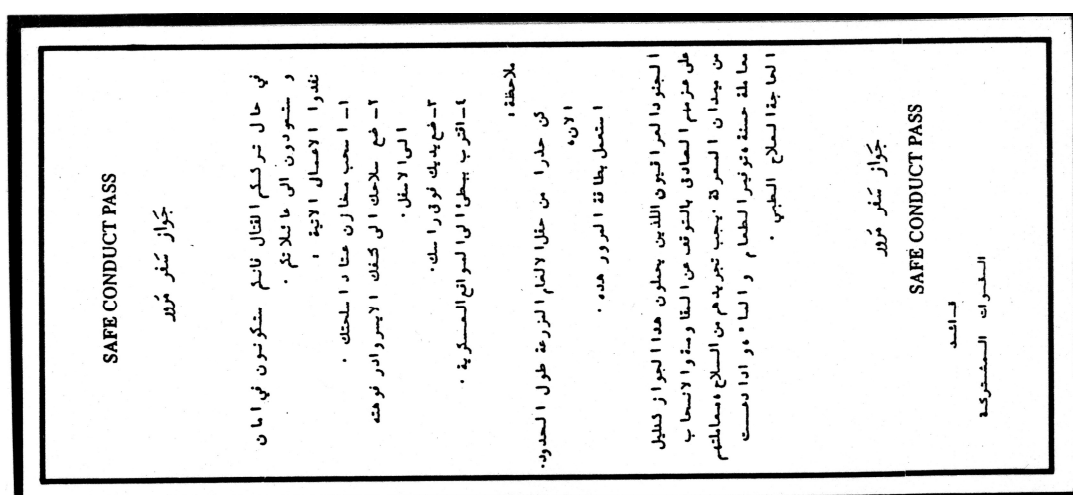 SAFE CONDUCT PASS
جَواز سَفر مُرور
في حال ترككم القتال فانكم ستكونون في امان
و ستعودون الى عائلاتكم .
نفذوا الاعمال الاتية :
١- اسحب مخازن عتاد اسلحتك .
٢- ضع سلاحك الى كتفك الايسر وادر فوهته
الى الاسفل.
٣- ضع يديك فوق راسك.
٤- اقترب ببطئ الى المواقع العسكرية .
ملاحظة :
كن حذرا من حقل الالغام المزروعة طول الحدود.
الان،
استعمل بطاقة المرور هذه .
الجنود العراقيون اللذين يحملون هذا الجواز كدليل
على عزمهم الصادق بالتوقف عن المقاومة والانسحاب
من ميدان المعركة ، يجب تجريدهم من السلاح ، معاملتهم
معاملة حسنة ، توفير الطعام و الماء ، و اذا دعت
الحاجة العلاج الطبي .
جَواز سَفر مُرور
SAFE CONDUCT PASS
قائد
القوات المشتركة